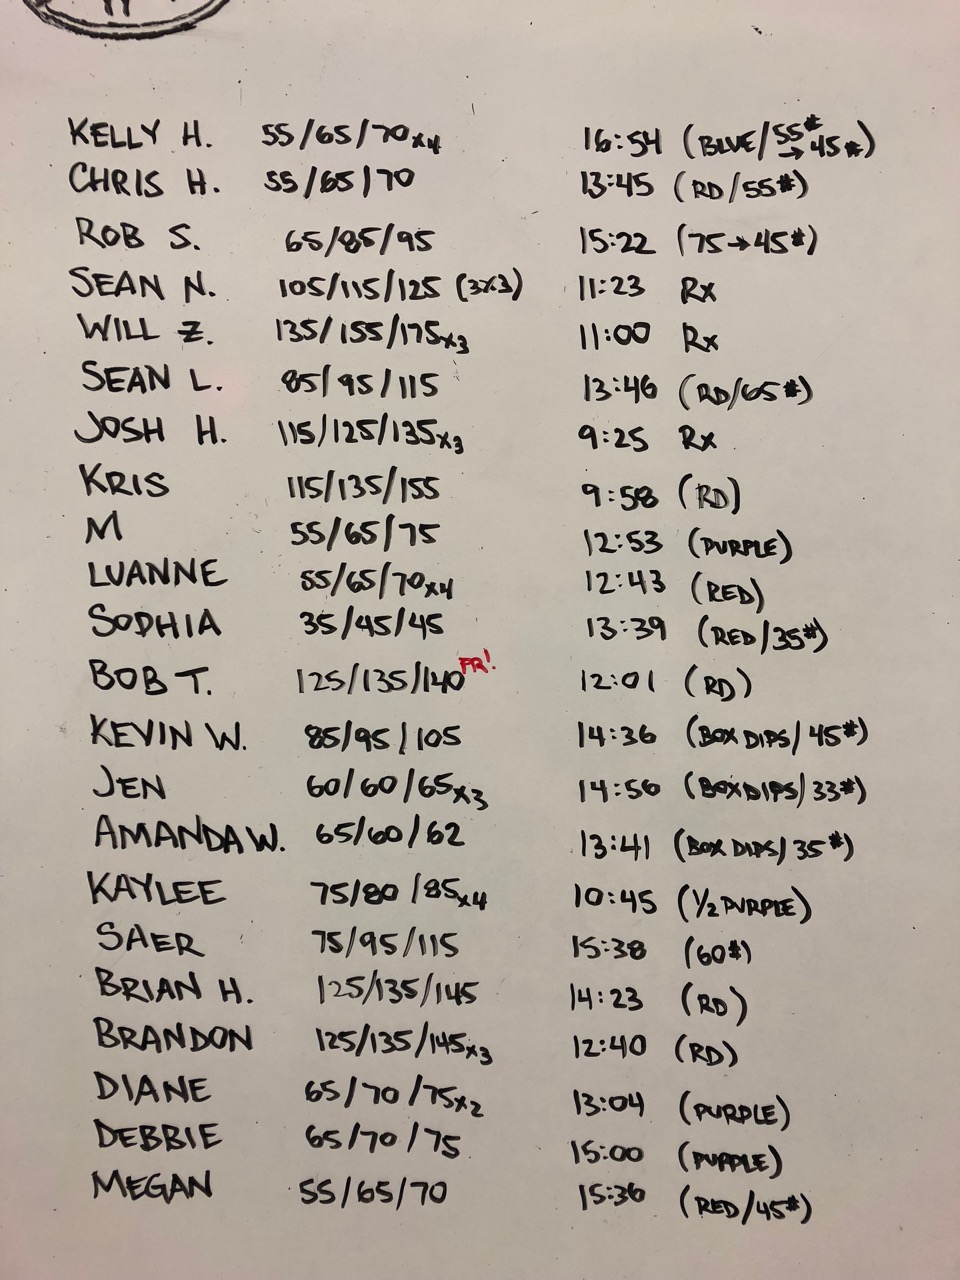 KELLY H. 55/65/70x4 16:54 (BLUE/55# → 45#)
CHRIS H. 55/65/70 13:45 (RD/55#)
ROB S. 65/85/95 15:22 (75→45#)
SEAN N. 105/115/125 (3x3) 11:23 Rx
WILL Z. 135/155/175x3 11:00 Rx
SEAN L. 85/95/115 13:46 (RD/65#)
JOSH H. 115/125/135x3 9:25 Rx
KRIS 115/135/155 9:58 (RD)
M 55/65/75 12:53 (PURPLE)
LUANNE 55/65/70x4 12:43 (RED)
SOPHIA 35/45/45 13:39 (RED/35#)
BOB T. 125/135/140 PR! 12:01 (RD)
KEVIN W. 85/95/105 14:36 (BOX DIPS/45#)
JEN 60/60/65x3 14:56 (BOX DIPS/33#)
AMANDA W. 65/60/62 13:41 (BOX DIPS/35#)
KAYLEE 75/80/85x4 10:45 (1/2 PURPLE)
SAER 75/95/115 15:38 (60#)
BRIAN H. 125/135/145 14:23 (RD)
BRANDON 125/135/145x3 12:40 (RD)
DIANE 65/70/75x2 13:04 (PURPLE)
DEBBIE 65/70/75 15:00 (PURPLE)
MEGAN 55/65/70 15:36 (RED/45#)